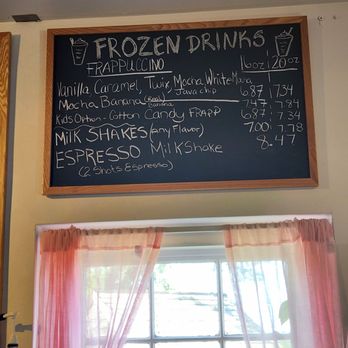 FROZEN DRINKS
FRAPPUCCINO 16oz 20oz
Vanilla, Caramel, Twix, Mocha, White Mocha
Java chip 687 734
Mocha Banana (Real) Banana 747 7.84
Kids Option - Cotton Candy FRAPP 687 7.34
MilK SHAKES (any Flavor) 700 7.78
ESPRESSO MilKShake 8.47
(2 Shots Espresso)